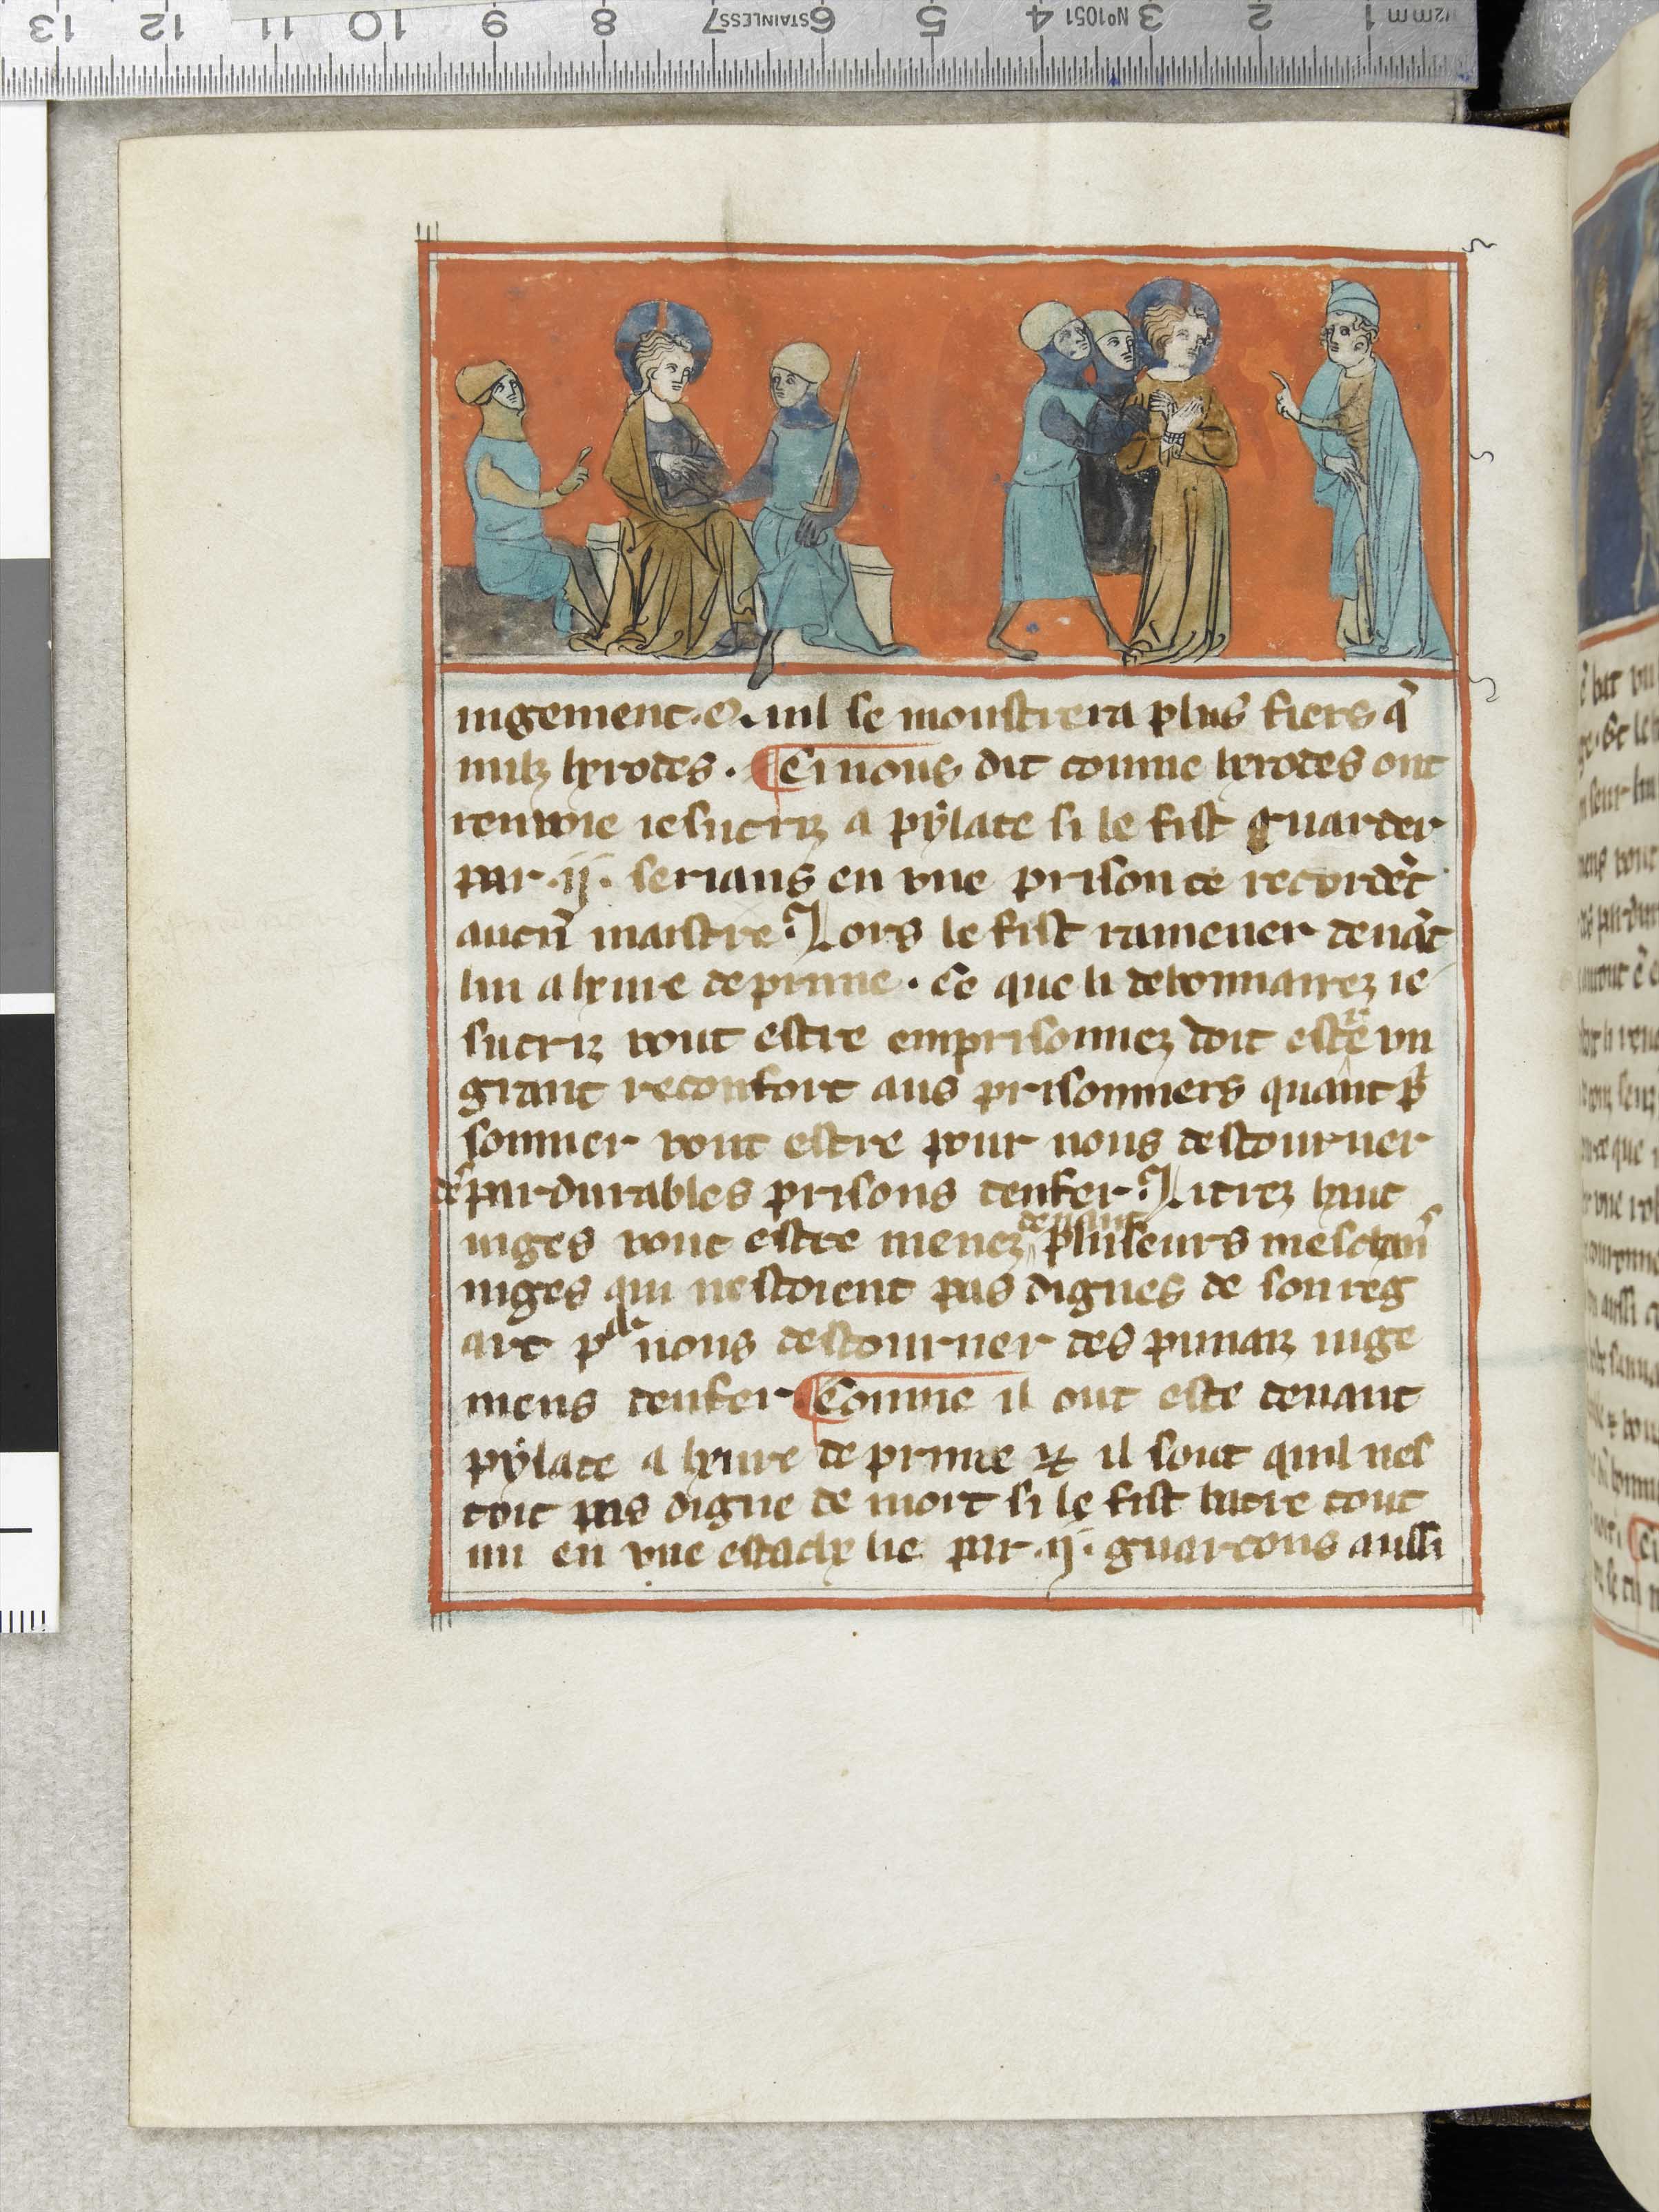 13 12 11 10 9 8 7 STAINLESS 6 5 4 Nº1051 3 2 1
iugement. ⁊ nil se moustrera plus fiers q̃
nulz herodes. Ci nous dit comme herodes out
renuoie iesucriz a pylate si le fist guarder
par .ij. serians en vne prison ce recordẽt
aucũ maistre. Lors le fist ramener deuãt
lui a heure de prime. Ce que li debonnairez ie
sucriz vout estre emprisonnez doit estre vn
grant reconfort aus prisonniers quant p̃
sonnier vout estre pour nous destourner
des pardurables prisons denfer. Li criez huit
iuges vout estre menez deuant pluseurs meschãs
iuges qui nestoient pas dignes de son reg
art pour nous destourner des punaiz iuge
mens denfer. Comme il out este deuant
pylate a heure de prime ⁊ il sout quil nes
toit pas digne de mort si le fist batre tout
nu en vne estache lie par .ij. guarcons aussi